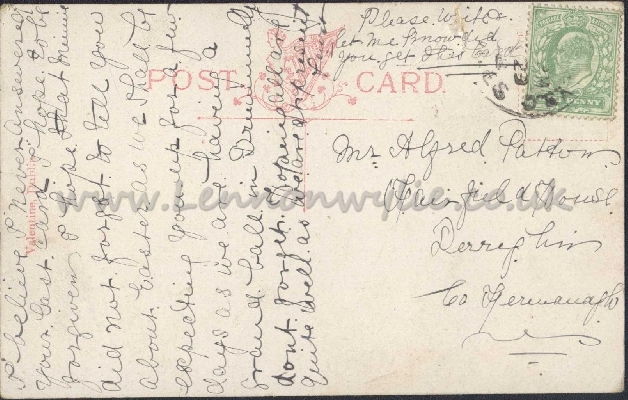 Please write
let me know did
you get this Card
POST CARD
PENNY
Valentine, Dublin
www.Lennonwylie.co.uk
Mr Alfred Patton
House
Derrylin
Co Fermanagh
I believe I never answered
your last Card I hope to be
forgiven I hope that
did not forget to tell you
about Easter as we shall be
expecting you up for a few
days as we are having a
grand ball in
dont forget. Hoping all are
quite well as we are at present